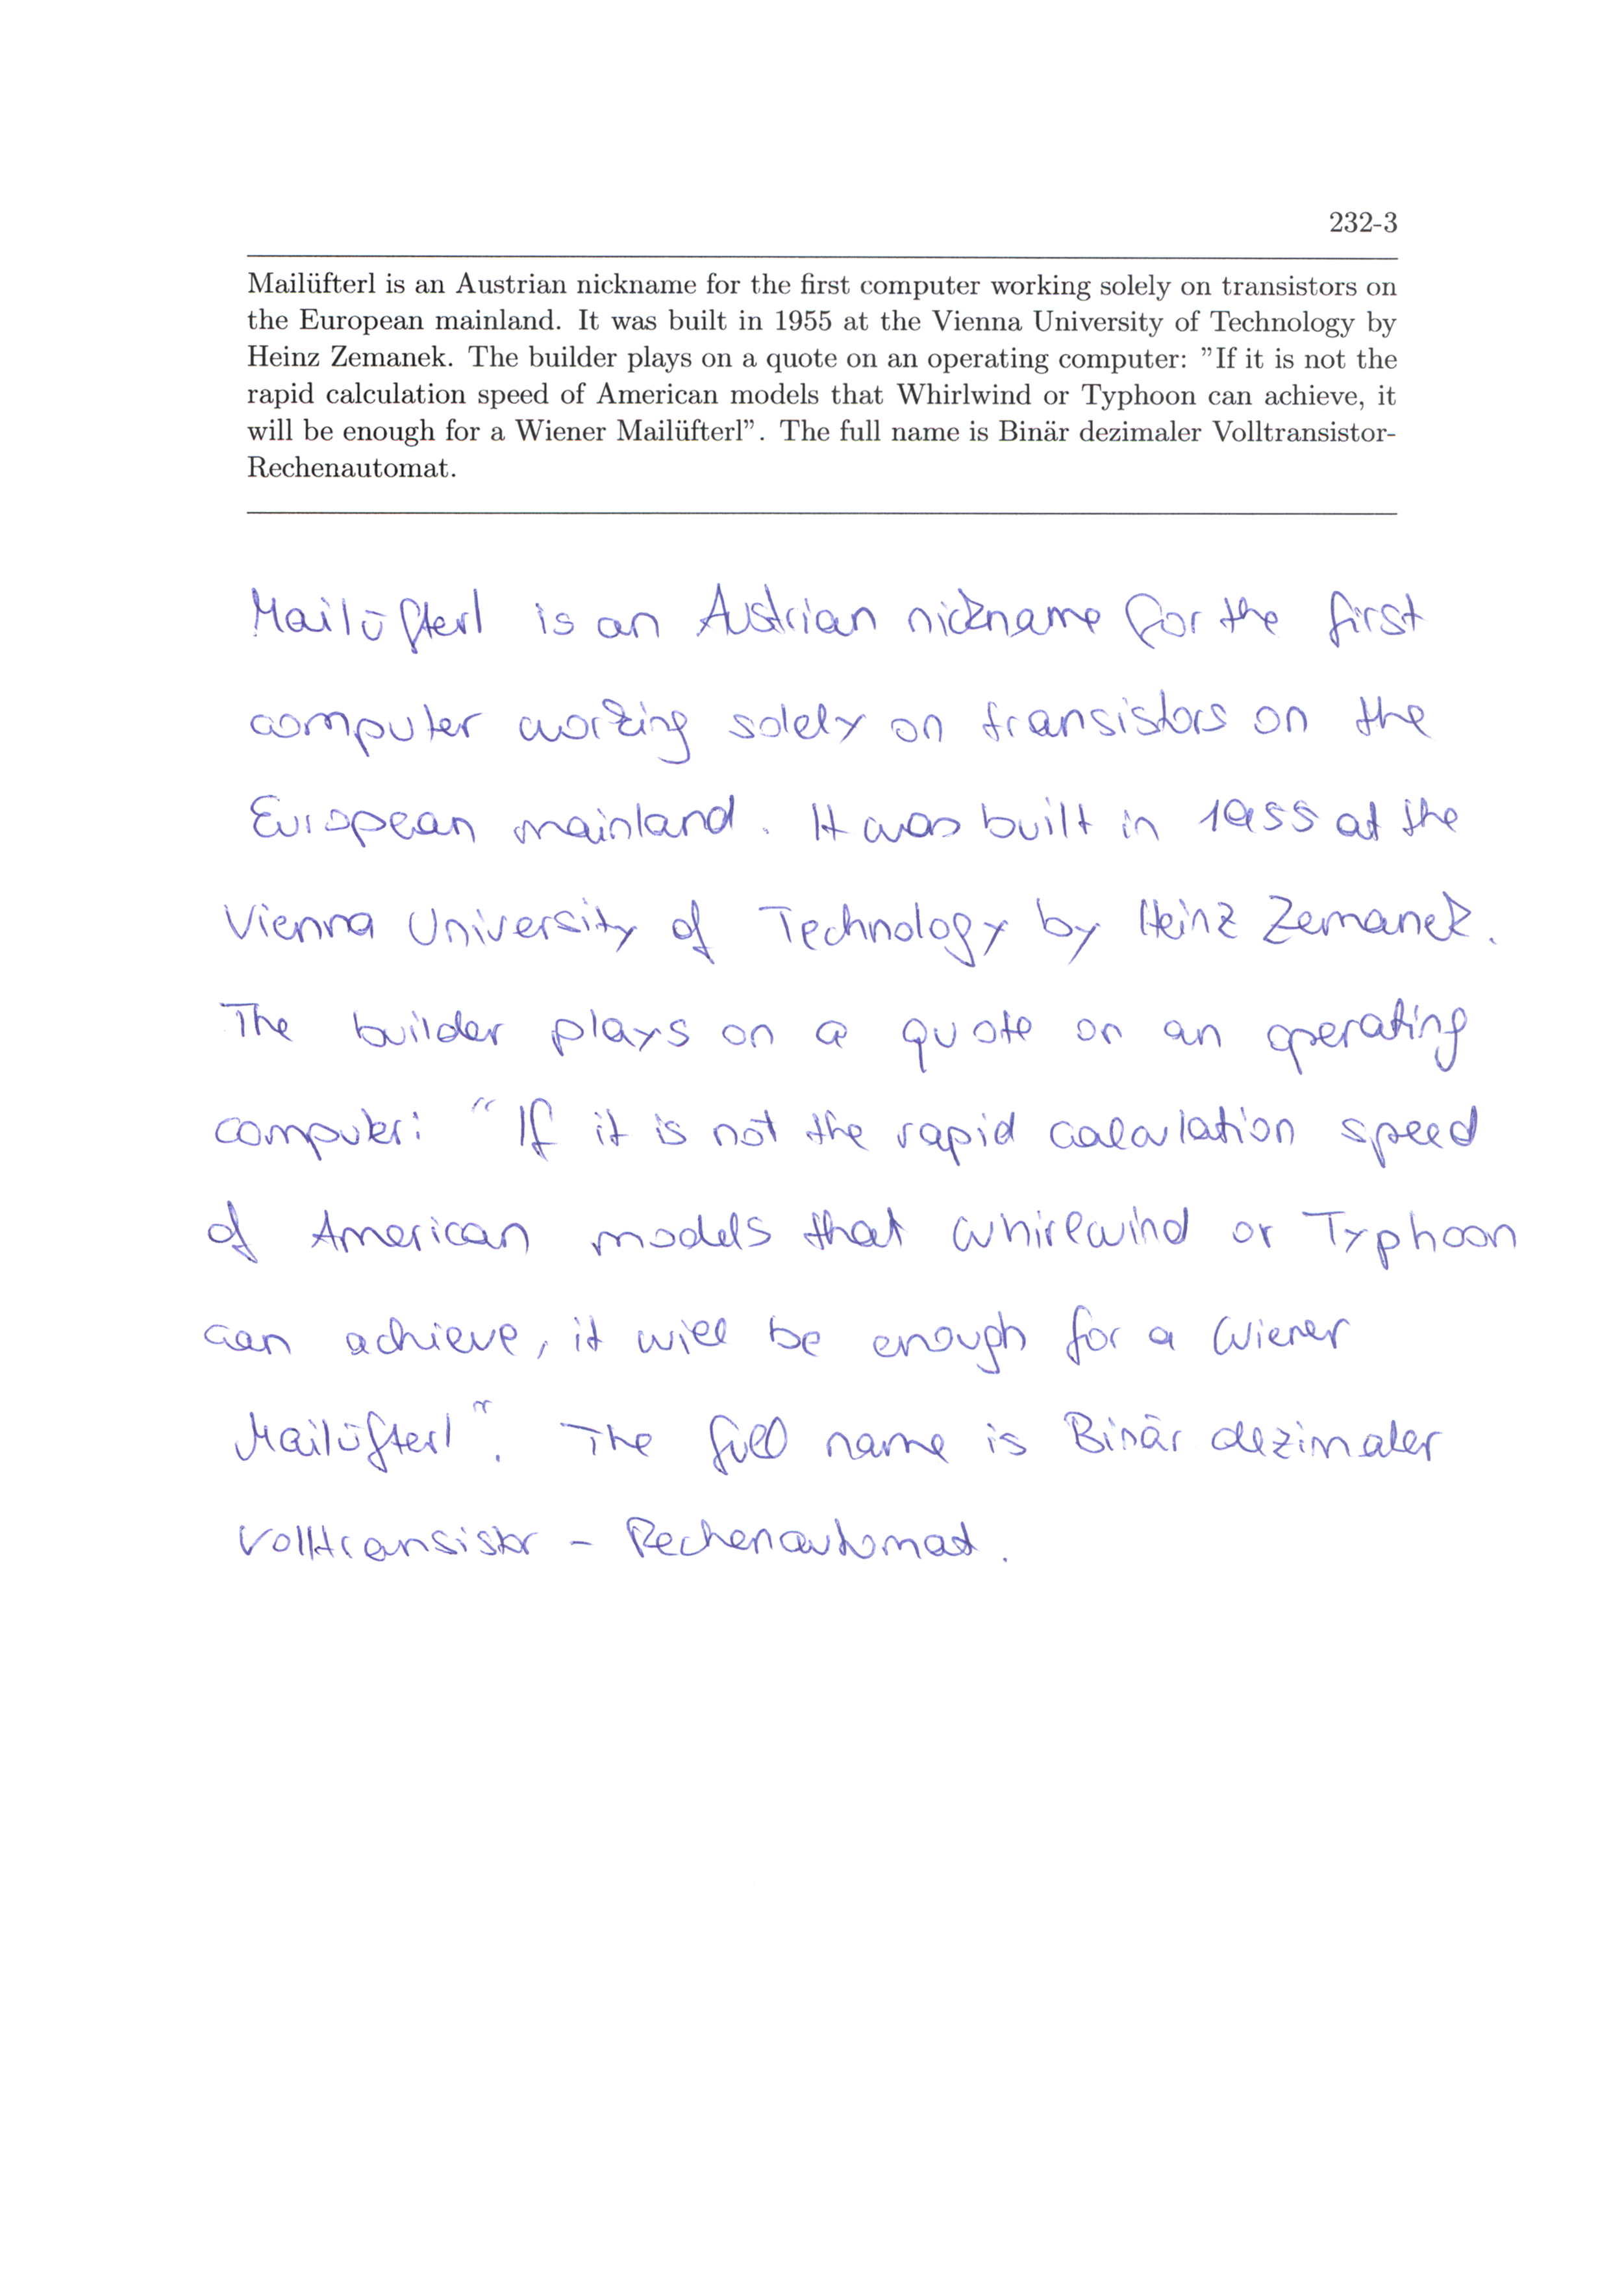 232-3
Mailüfterl is an Austrian nickname for the first computer working solely on transistors on
the European mainland. It was built in 1955 at the Vienna University of Technology by
Heinz Zemanek. The builder plays on a quote on an operating computer: ”If it is not the
rapid calculation speed of American models that Whirlwind or Typhoon can achieve, it
will be enough for a Wiener Mailüfterl”. The full name is Binär dezimaler Volltransistor-
Rechenautomat.
Mailüfterl is an Austrian nickname for the first
computer working solely on transistors on the
European mainland. It was built in 1955 at the
Vienna University of Technology by Heinz Zemanek.
The builder plays on a quote on an operating
computer: “If it is not the rapid calculation speed
of American models that Whirlwind or Typhoon
can achieve, it will be enough for a Wiener
Mailüfterl”. The full name is Binär dezimaler
Volltransistor - Rechenautomat.